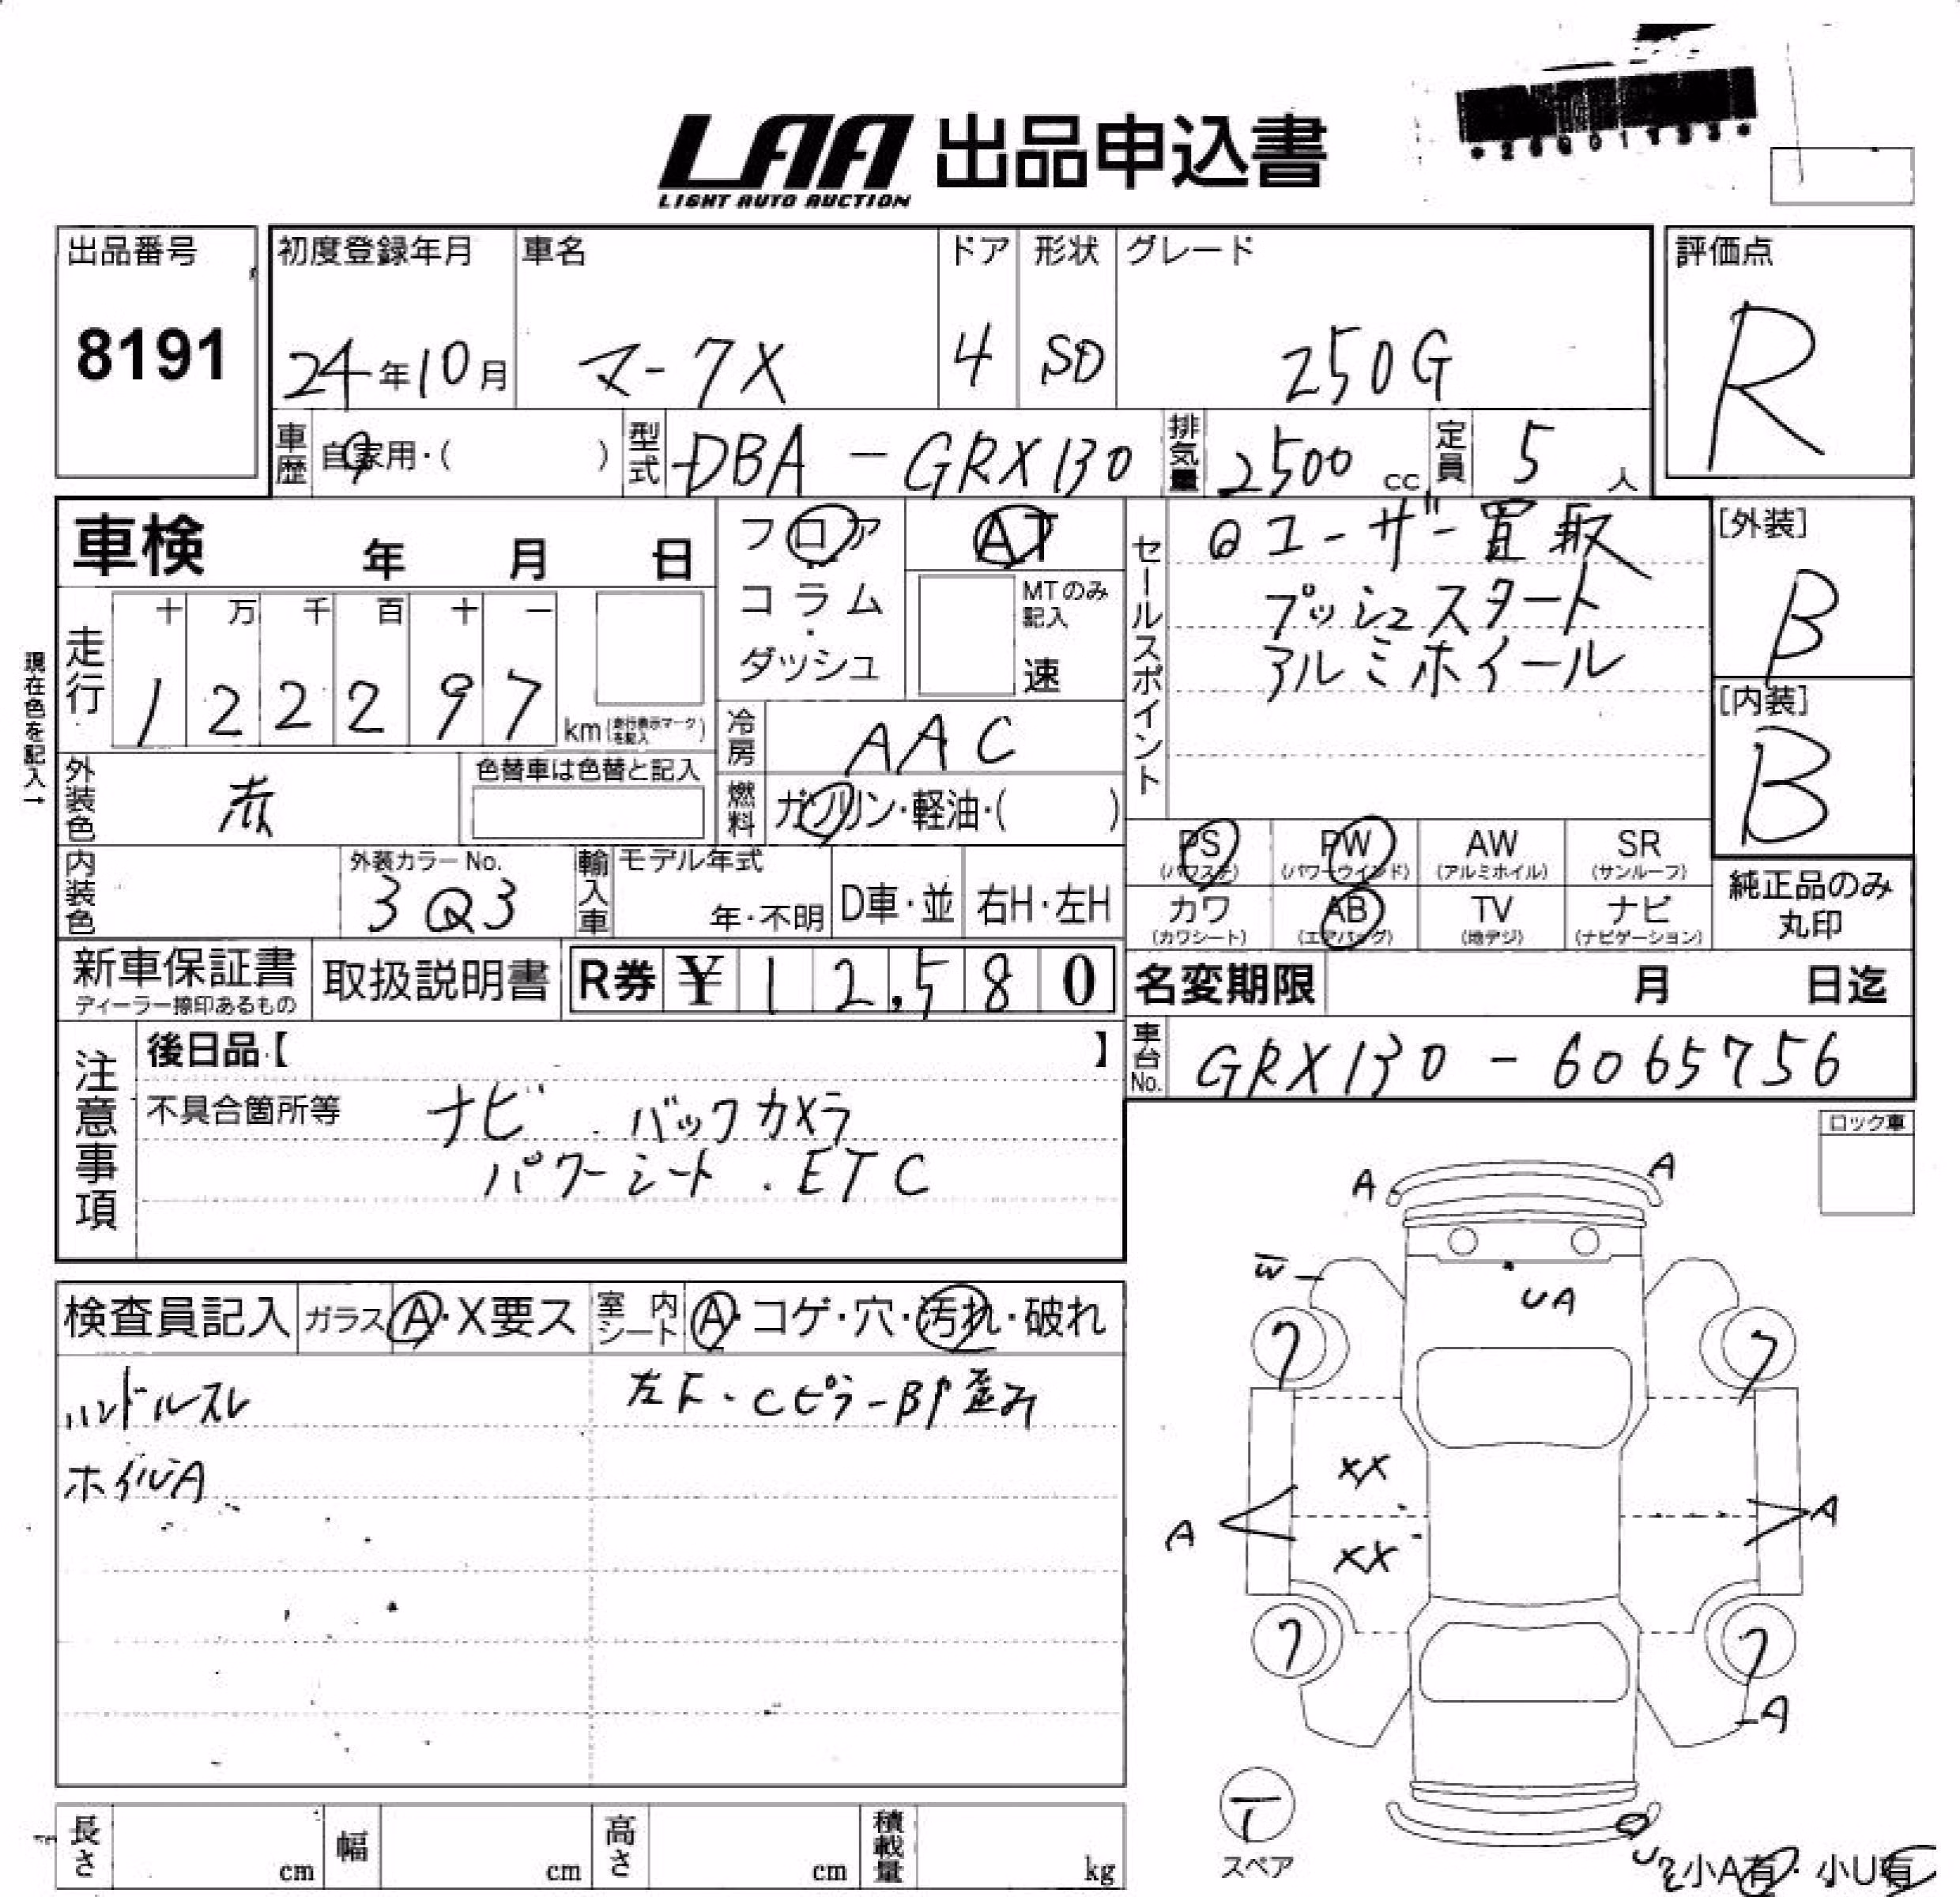 LAA 出品申込書
LIGHT AUTO AUCTION
出品番号
8191
初度登録年月
24年10月
車名
マー7X
ドア
4
形状
SD
グレード
250G
評価点
R
車歴
自家用・(　　)
型式
DBA-GRX130
排気量
2500 cc
定員
5 人
車検 年 月 日
フロア
コラム
・
ダッシュ
AT
MTのみ記入
速
セールスポイント
ユーザー買取
プッシュスタート
アルミホイール
[外装]
B
[内装]
B
現在色を記入→
走行
十 万 千 百 十 一
1 2 2 2 9 7 km(走行表示マークを記入)
冷房
AAC
外装色
赤
色替車は色替と記入
燃料
ガソリン・軽油・(　　)
PS (パワステ)
PW (パワーウインド)
AW (アルミホイル)
SR (サンルーフ)
カワ (カワシート)
AB (エアバッグ)
TV (地デジ)
ナビ (ナビゲーション)
純正品のみ
丸印
内装色
外装カラーNo.
3Q3
輸入車
モデル年式
年・不明
D車・並
右H・左H
新車保証書
ディーラー捺印あるもの
取扱説明書
R券 ¥ 12,580
名変期限 月 日迄
車台No.
GRX130-6065756
注意事項
後日品【　　】
不具合箇所等
ナビ . バックカメラ
パワーシート . ETC
ロック車
検査員記入
ガラス A・X要ス
室内シート A・コゲ・穴・汚れ・破れ
ハンドルスレ
ホイルA
左F・CピラーBP歪み
A
A
W
UA
7
7
XX
A
A
XX
7
7
A
スペア
T
U2
小A有・小U有
長さ cm
幅 cm
高さ cm
積載量 kg